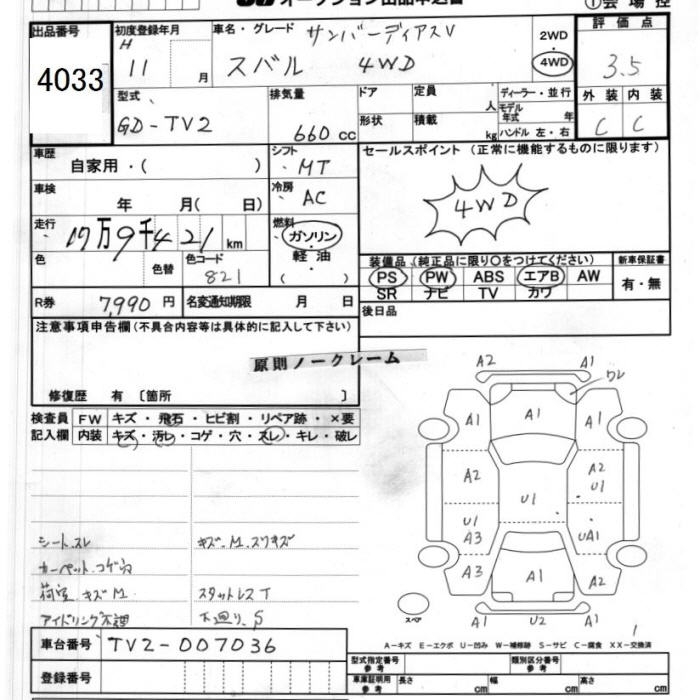 オークション出品申込書 ①会場控
出品番号 4033
初度登録年月 H 11 月
車名・グレード サンバーディアスV
スバル 4WD
2WD ・ 4WD
評価点 3.5
型式 GD-TV2
排気量 660 cc
ドア 形状
定員 人
積載 kg
ディーラー・並行
モデル年式 年
ハンドル 左・右
外装 内装
C C
車歴 自家用・( )
シフト MT
セールスポイント (正常に機能するものに限ります)
4WD
車検 年 月( 日)
冷房 AC
走行 17万9千421 km
燃料 ガソリン・軽油・( )
色 色替
色コード 821
装備品 (純正品に限り○をつけてください)
PS PW ABS エアB AW
SR ナビ TV カワ
新車保証書 有・無
R券 7,990 円
名変通知期限 月 日
後日品
注意事項申告欄 (不具合内容等は具体的に記入して下さい)
原則ノークレーム
修復歴 有 〔箇所 〕
検査員 FW キズ・飛石・ヒビ割・リペア跡・×要
記入欄 内装 キズ・汚レ・コゲ・穴・スレ・キレ・破レ
シート.スレ キズ.M.スリキズ
カーペット.コゲ穴
荷室 キズM スタットレスT
アイドリング不調 下廻り.S
A2 A1
ワレ
A1 A1 A1
A2 A2
U1 U1
U1 A3 UA1
A3 A1 A2
A1 U2 A1
スペア
車台番号 TV2-007036
A−キズ E−エクボ U−凹み W−補修跡 S−サビ C−腐食 XX−交換済
登録番号
型式指定番号 参考
類別区分番号 参考
車庫証明用 参考 長さ cm 幅 cm 高さ cm